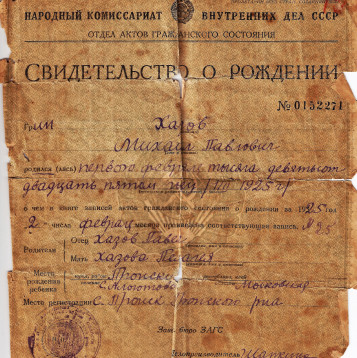 НАРОДНЫЙ КОМИССАРИАТ ВНУТРЕННИХ ДЕЛ СССР
ОТДЕЛ АКТОВ ГРАЖДАНСКОГО СОСТОЯНИЯ
СВИДЕТЕЛЬСТВО О РОЖДЕНИИ
№ 0152271
Хазов
Михаил Павлович
родился (лась) первого февраля тысяча девятьсот
двадцать пятом 1925
о чем в книге записей актов гражданского состояния о рождении за 1925 год
2 феврал месяца произведена соответствующая запись № 25
Родители
Отец Хазов Павел
Мать Хазова Пелагея
Место рождения ребенка
Место регистрации с. Пронск Пронского р-на
Зав. бюро ЗАГС
Делопроизводитель